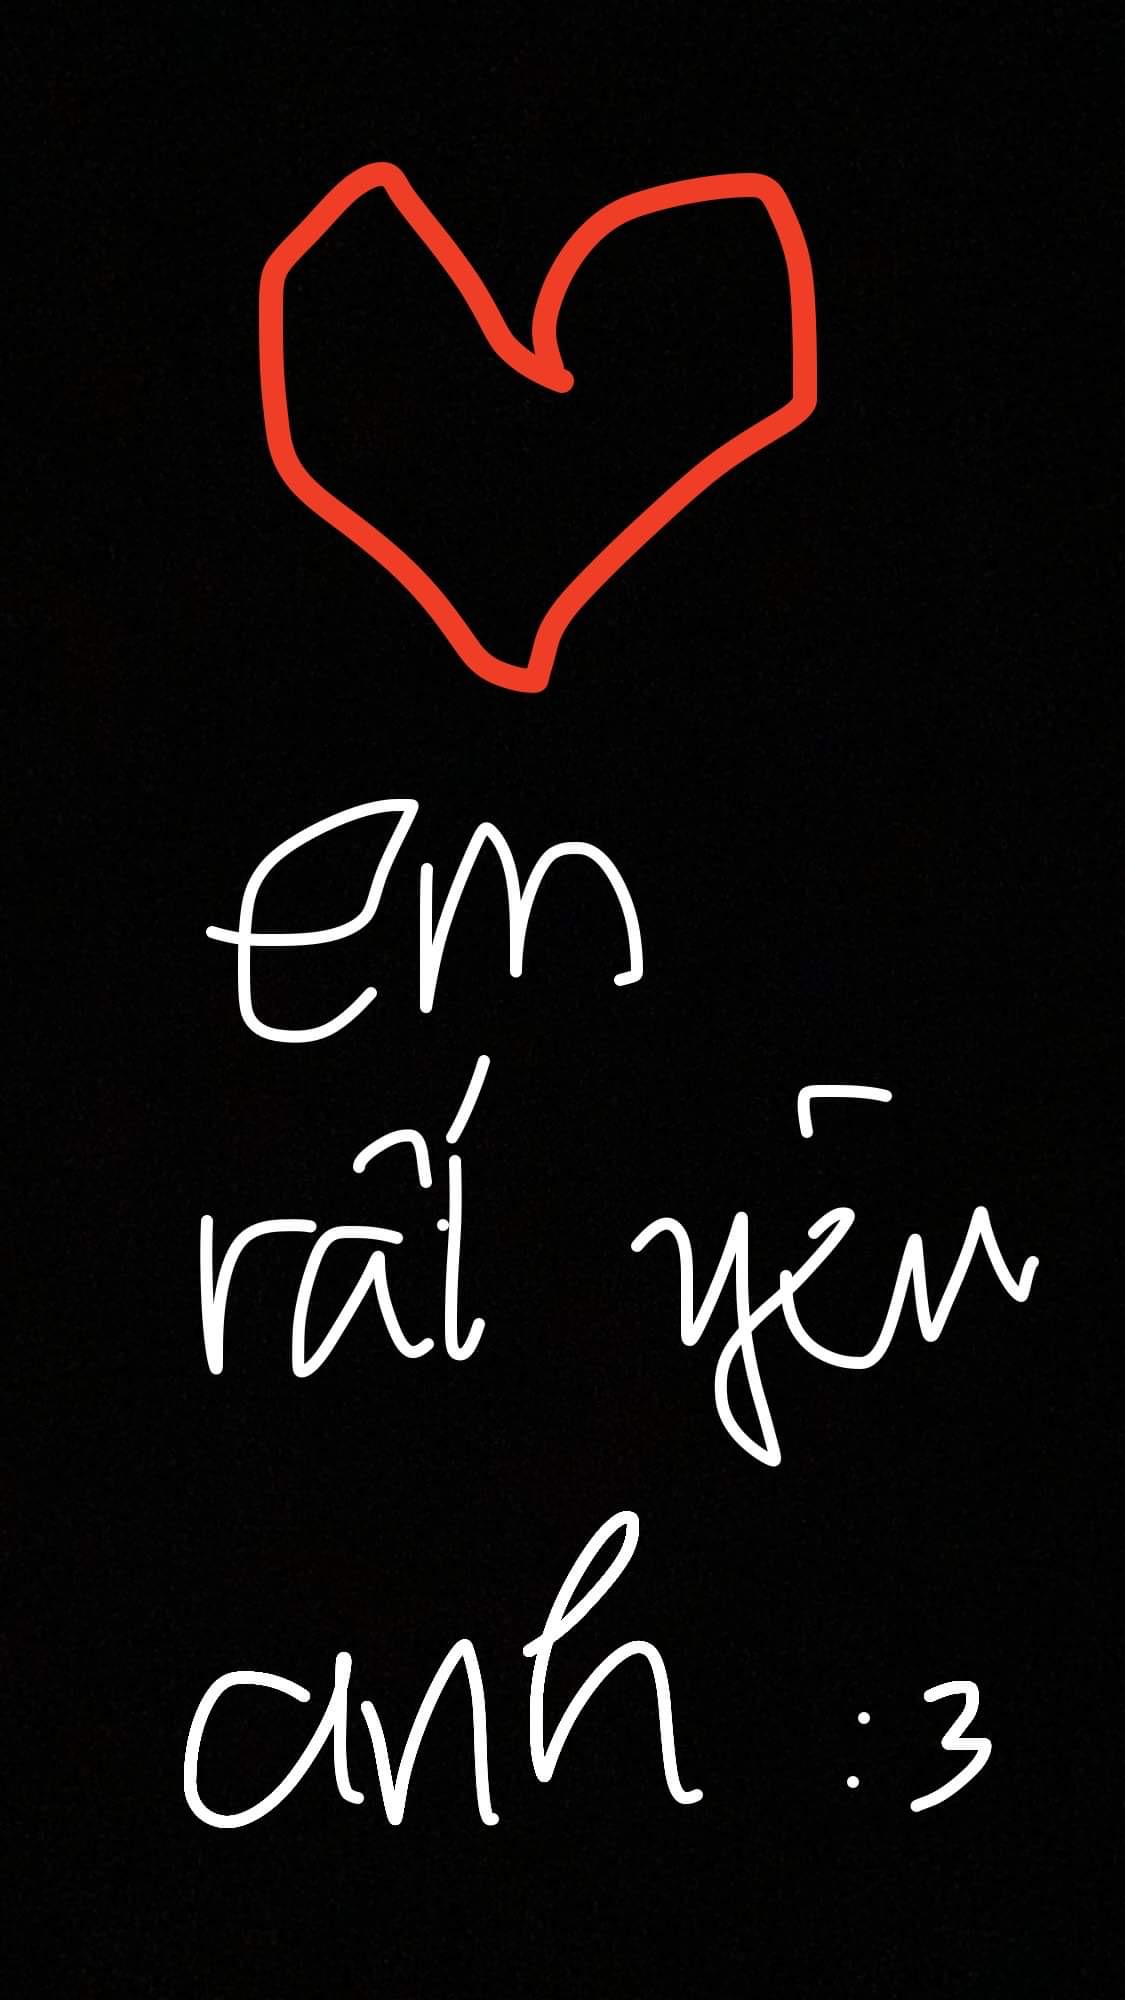 em
rất yêu
anh :3